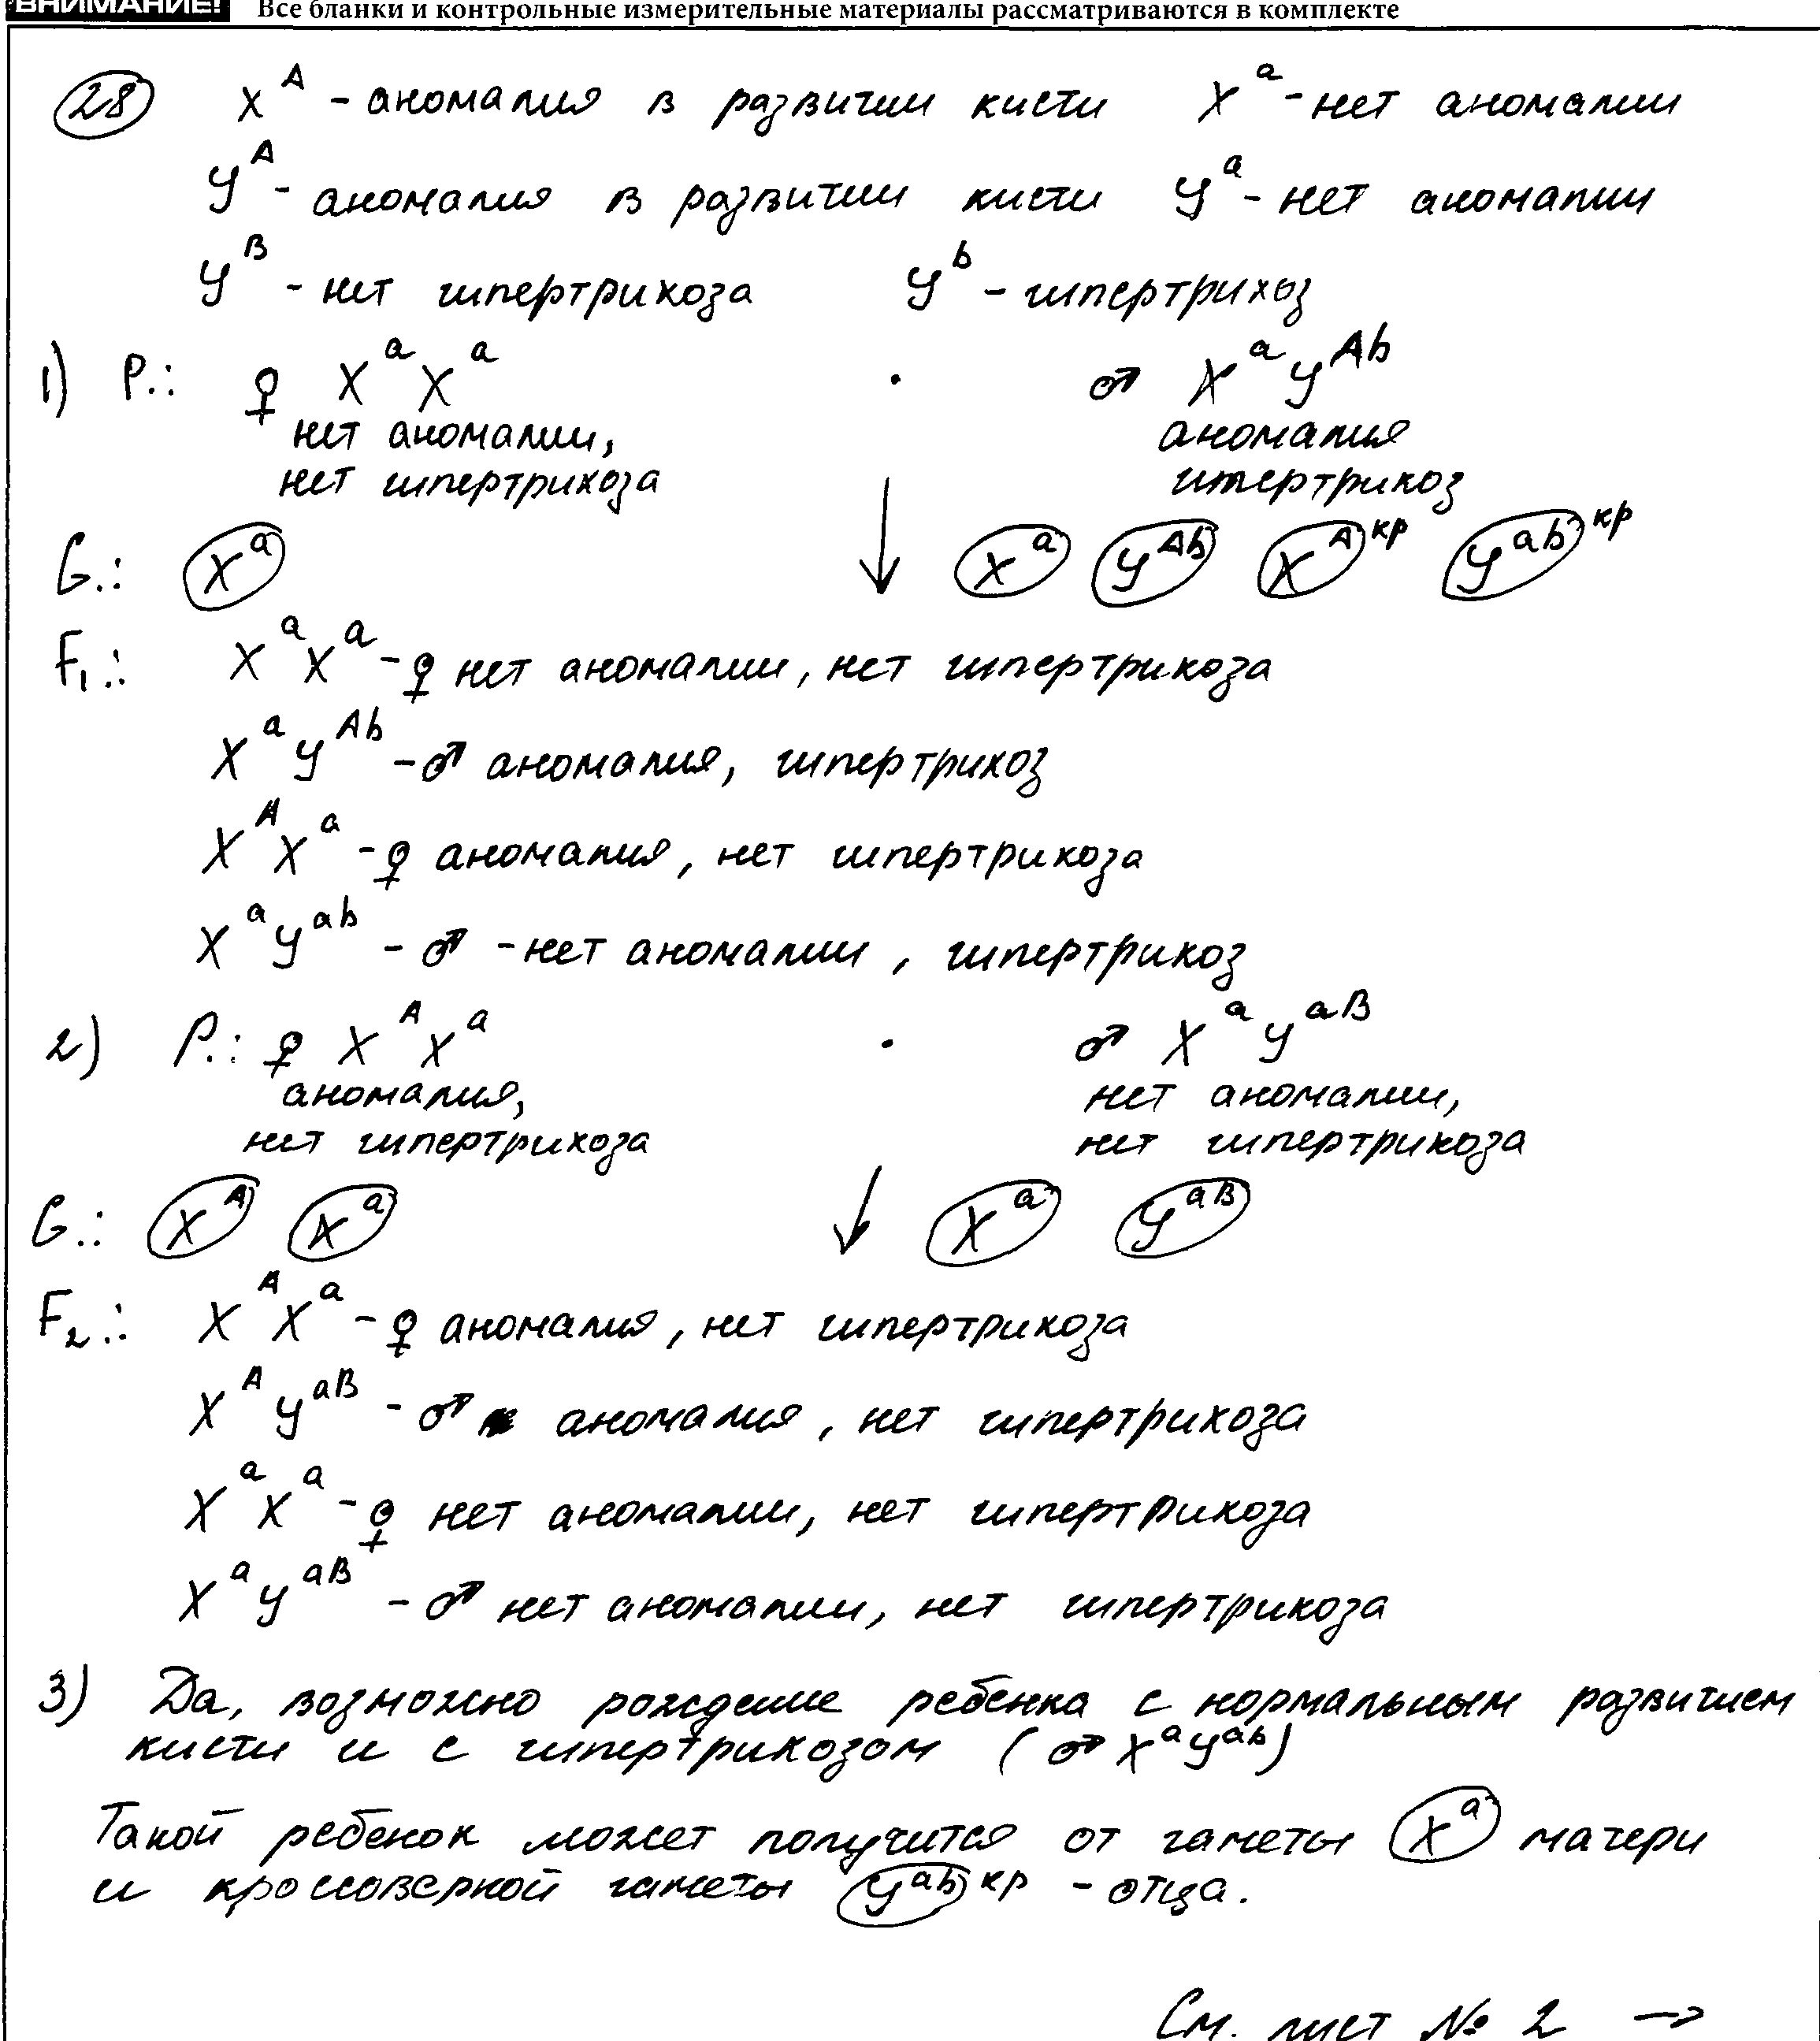 ВНИМАНИЕ! Все бланки и контрольные измерительные материалы рассматриваются в комплекте
28 X^A - аномалия в развитии кисти X^a - нет аномалии
Y^A - аномалия в развитии кисти Y^a - нет аномалии
Y^B - нет гипертрихоза Y^b - гипертрихоз
1) P.: ♀ X^a X^a · ♂ X^a Y^Ab
нет аномалии, аномалия
нет гипертрихоза гипертрихоз
G.: X^a ↓ X^a Y^Ab X^A кр Y^ab кр
F1.: X^a X^a - ♀ нет аномалии, нет гипертрихоза
X^a Y^Ab - ♂ аномалия, гипертрихоз
X^A X^a - ♀ аномалия, нет гипертрихоза
X^a Y^ab - ♂ - нет аномалии, гипертрихоз
2) P.: ♀ X^A X^a · ♂ X^a Y^aB
аномалия, нет аномалии,
нет гипертрихоза нет гипертрихоза
G.: X^A X^a ↓ X^a Y^aB
F2.: X^A X^a - ♀ аномалия, нет гипертрихоза
X^A Y^aB - ♂ аномалия, нет гипертрихоза
X^a X^a - ♀ нет аномалии, нет гипертрихоза
X^a Y^aB - ♂ нет аномалии, нет гипертрихоза
3) Да, возможно рождение ребенка с нормальным развитием
кисти и с гипертрихозом (♂ X^a Y^ab)
Такой ребенок может получится от гаметы X^a матери
и кроссоверной гаметы Y^ab кр - отца.
См. лист № 2 →